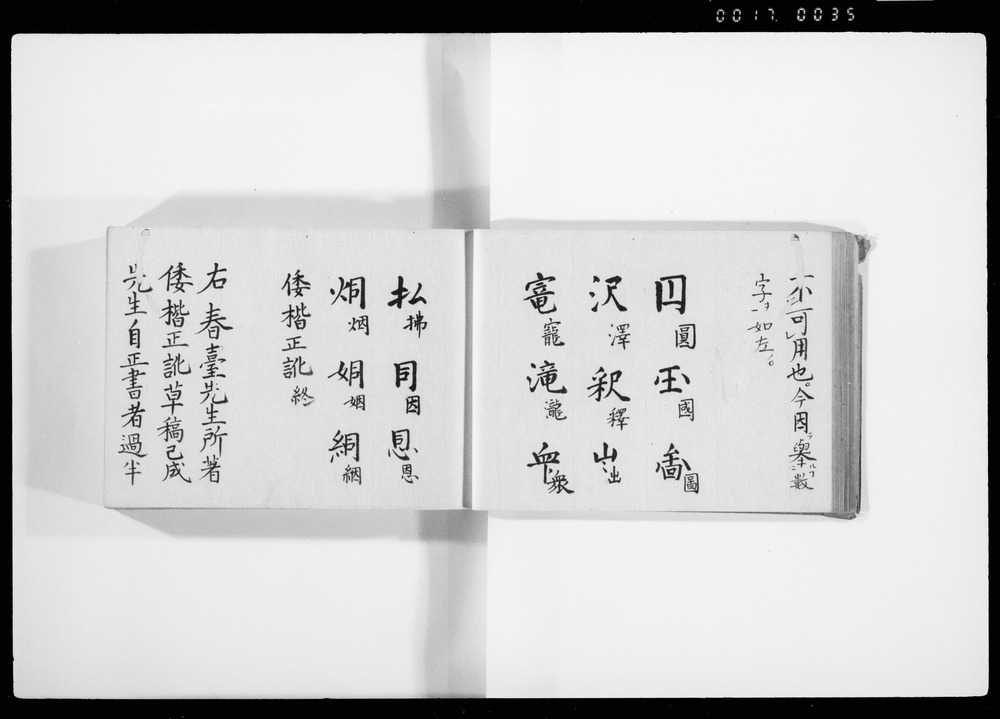 0017 0035
不可用也。今因擧数
字ヿ如左。
囘 圓 囯 國 啚 圖
沢 澤 釈 釋 㞮 出
竜 寵 滝 瀧 卆 衆
払 拂 囙 因 恩 恩
烟 姻 絪
倭楷正訛 終
右春臺先生所著
倭楷正訛草稿已成
先生自正書者過半